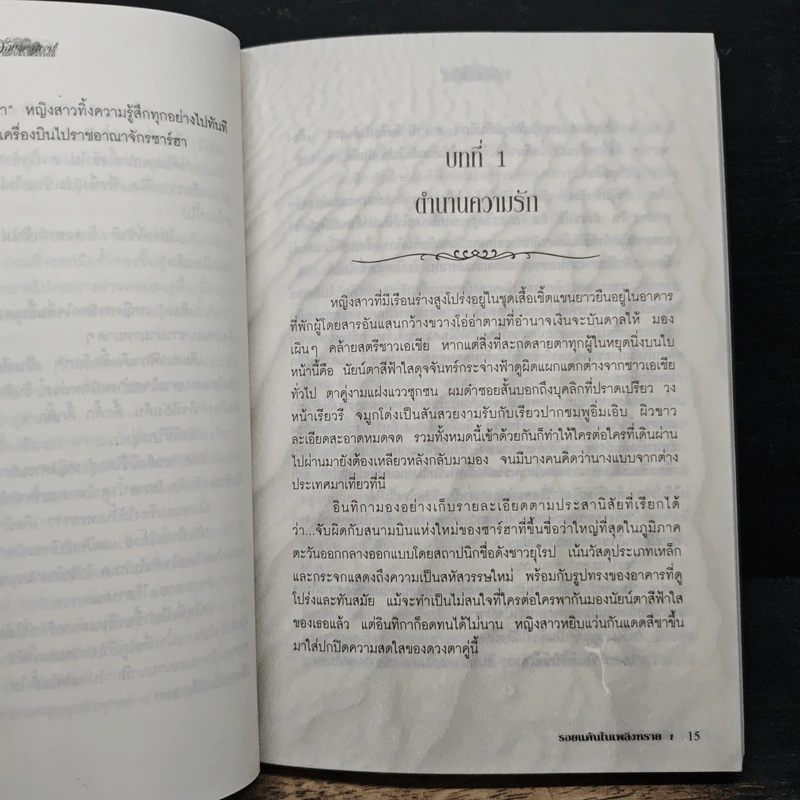 า" หญิงสาวทิ้งความรู้สึกทุกอย่างไปทันที
เครื่องบินไปราชอาณาจักรซาร์ฮา
บทที่ 1
ตำนานความรัก
หญิงสาวที่มีเรือนร่างสูงโปร่งอยู่ในชุดเสื้อเชิ้ตแขนยาวยืนอยู่ในอาคาร
ที่พักผู้โดยสารอันแสนกว้างขวางโอ่อ่าตามที่อำนาจเงินจะบันดาลให้ มอง
เผินๆ คล้ายสตรีชาวเอเชีย หากแต่สิ่งที่สะกดสายตาทุกผู้ในหยุดนิ่งบนใบ
หน้านี้คือ นัยน์ตาสีฟ้าใสดุจจันทร์กระจ่างฟ้าดูผิดแผกแตกต่างจากชาวเอเชีย
ทั่วไป ตาคู่งามแฝงแววซุกซน ผมดำซอยสั้นบอกถึงบุคลิกที่ปราดเปรียว วง
หน้าเรียวรี จมูกโด่งเป็นสันสวยงามรับกับเรียวปากชมพูอิ่มเอิบ ผิวขาว
ละเอียดสะอาดหมดจด รวมทั้งหมดนี้เข้าด้วยกันก็ทำให้ใครต่อใครที่เดินผ่าน
ไปผ่านมายังต้องเหลียวหลังกลับมามอง จนมีบางคนคิดว่านางแบบจากต่าง
ประเทศมาเที่ยวที่นี่
อินทิกามองอย่างเก็บรายละเอียดตามประสานิสัยที่เรียกได้
ว่า...จับผิดกับสนามบินแห่งใหม่ของซาร์ฮาที่ขึ้นชื่อว่าใหญ่ที่สุดในภูมิภาค
ตะวันออกกลางออกแบบโดยสถาปนิกชื่อดังชาวยุโรป เน้นวัสดุประเภทเหล็ก
และกระจกแสดงถึงความเป็นสหัสวรรษใหม่ พร้อมกับรูปทรงของอาคารที่ดู
โปร่งและทันสมัย แม้จะทำเป็นไม่สนใจที่ใครต่อใครพากันมองนัยน์ตาสีฟ้าใส
ของเธอแล้ว แต่อินทิกาก็อดทนได้ไม่นาน หญิงสาวหยิบแว่นกันแดดสีชาขึ้น
มาใส่ปกปิดความสดใสของดวงตาคู่นี้
รอยแค้นในเพลิงทราย 1 15